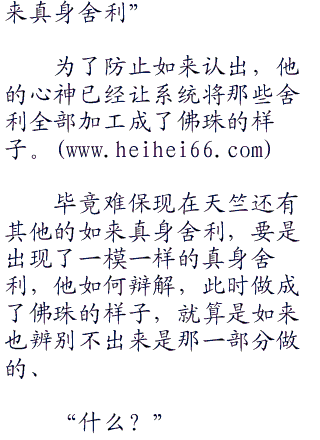 来真身舍利”
为了防止如来认出，他
的心神已经让系统将那些舍
利全部加工成了佛珠的样
子。(www.heihei66.com)
毕竟难保现在天竺还有
其他的如来真身舍利，要是
出现了一模一样的真身舍
利，他如何辩解，此时做成
了佛珠的样子，就算是如来
也辨别不出来是那一部分做
的、
“什么？”